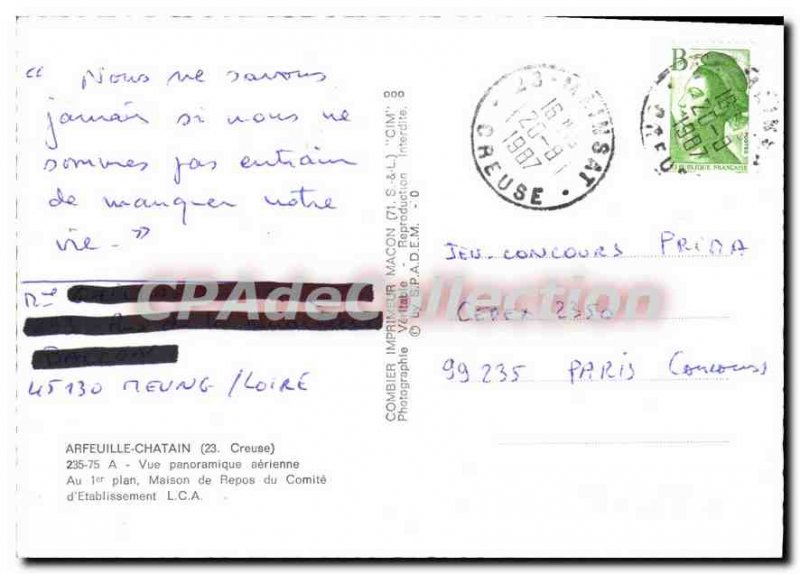 “ Nous ne savons
jamais si nous ne
sommes pas entrain
de manquer notre
vie. ”
Mme
45130 MEUNG / LOIRE
ARFEUILLE-CHATAIN (23. Creuse)
235-75 A - Vue panoramique aérienne
Au 1er plan, Maison de Repos du Comité
d'Etablissement L.C.A.
COMBIER IMPRIMEUR MACON (71. S.-&-L.) "CIM"
Photographie Véritable - Reproduction Interdite.
© by S.P.A.D.E.M. - D
23 - MAINSAT
16 H
20-8
1987
CREUSE
B
REPUBLIQUE FRANÇAISE
20-8
1987
JEU-CONCOURS PRIMA
CEDEX 2750
99235 PARIS CONCOURS
CPAdeCollection